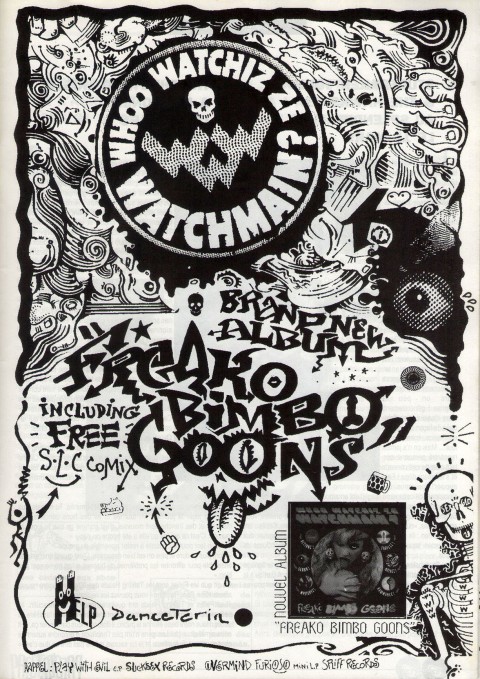 WHOO WATCHIZ ZE
WATCHMAIN?
WWW
BRAND NEW
ALBUM
"FREAKO
BIMBO
GOONS"
INCLUDING
FREE
S.L.C COMIX
HELP
Danceteria
NOUVEL ALBUM
"FREAKO BIMBO GOONS"
RAPPEL : PLAY WITH EVIL E.P SUCKSEX RECORDS OVERMIND FURIOSO MINI LP SPLIFF RECORDS